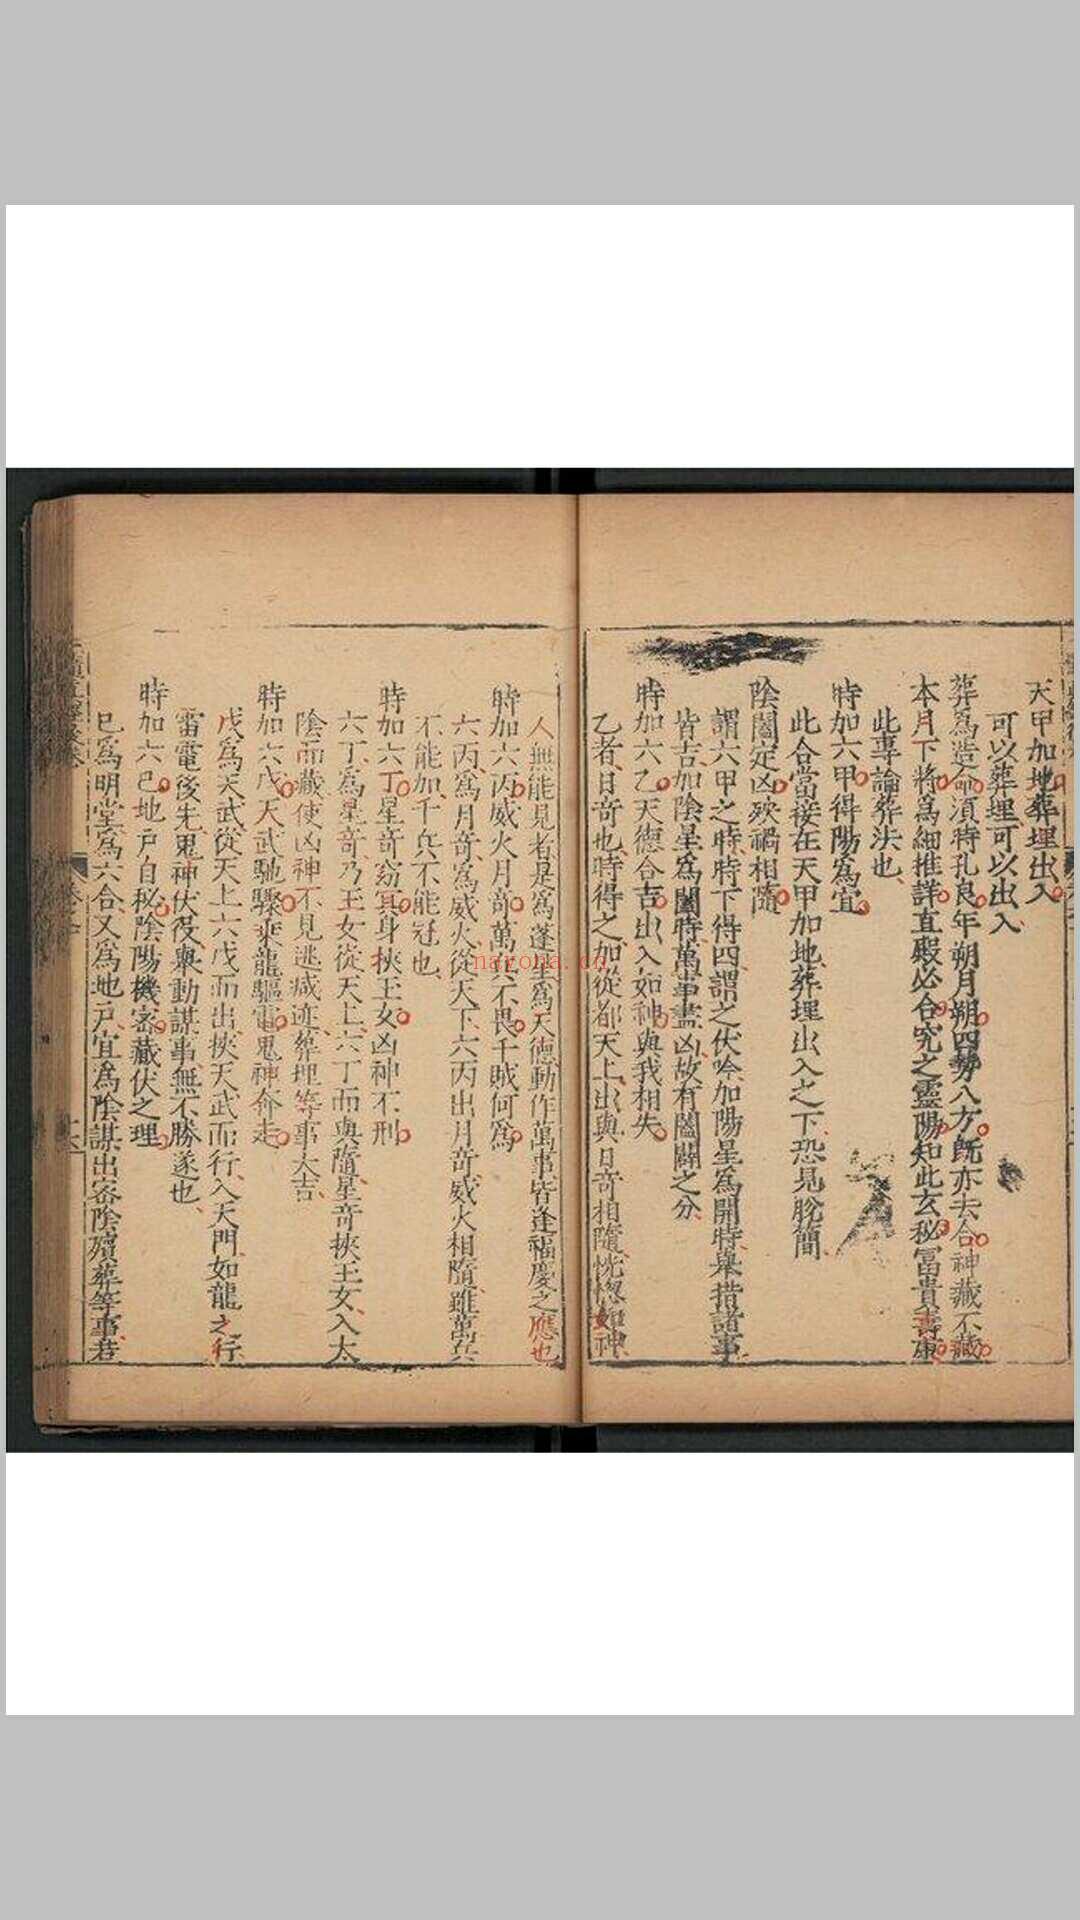 天甲加地葬埋出入
可以葬埋可以出入
葬為造命湏特孔良年朔月朔四勢八方旣亦去合神藏不藏
本月下將爲細推詳直殿必合究之靈陽知此玄秘冨貴壽康
此專論葬法也
時加六甲得陽爲宜
此合當接在天甲加地葬埋出入之下恐見脫簡
陰闔定凶殃禍相隨
謂六甲之時時下得四謂之伏吟加陽星爲開時舉措諸事
皆吉加陰星爲闔時萬事盡凶故有闔闢之分
時加六乙天德合吉出入如神與我相失
乙者日奇也時得之加從都天上出與日奇相隨恍惚如神
人無能見者是爲蓬星爲天德動作萬事皆逢福慶之應也
時加六丙威火月奇萬兵不畏千賊何爲
六丙爲月奇爲威火從天下六丙出月奇威火相隨雖萬兵
不能加千兵不能冦也
時加六丁星奇窈冥身挾王女凶神不刑
六丁爲星奇乃王女從天上六丁而與隨星奇挾王女入太
陰而藏使凶神不見逃減迹葬埋等事大吉
時加六戊天武馳驟乘龍驅電鬼神奔走
戊爲天武從天上六戊而出挾天武而行入天門如龍之行
雷電後先鬼神伏役舉動謀事無不勝遂也
時加六己地戸自秘陰陽機密藏伏之理
巳爲明堂爲六合又爲地戸宜爲陰謀出密陰殯葬等事若
nayona.cn